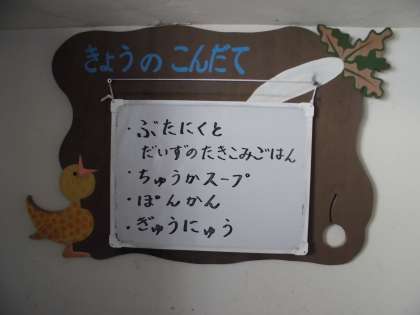 きょうの こんだて
・ぶたにくと
だいずのたきこみごはん
・ちゅうかスープ
・ぽんかん
・ぎゅうにゅう